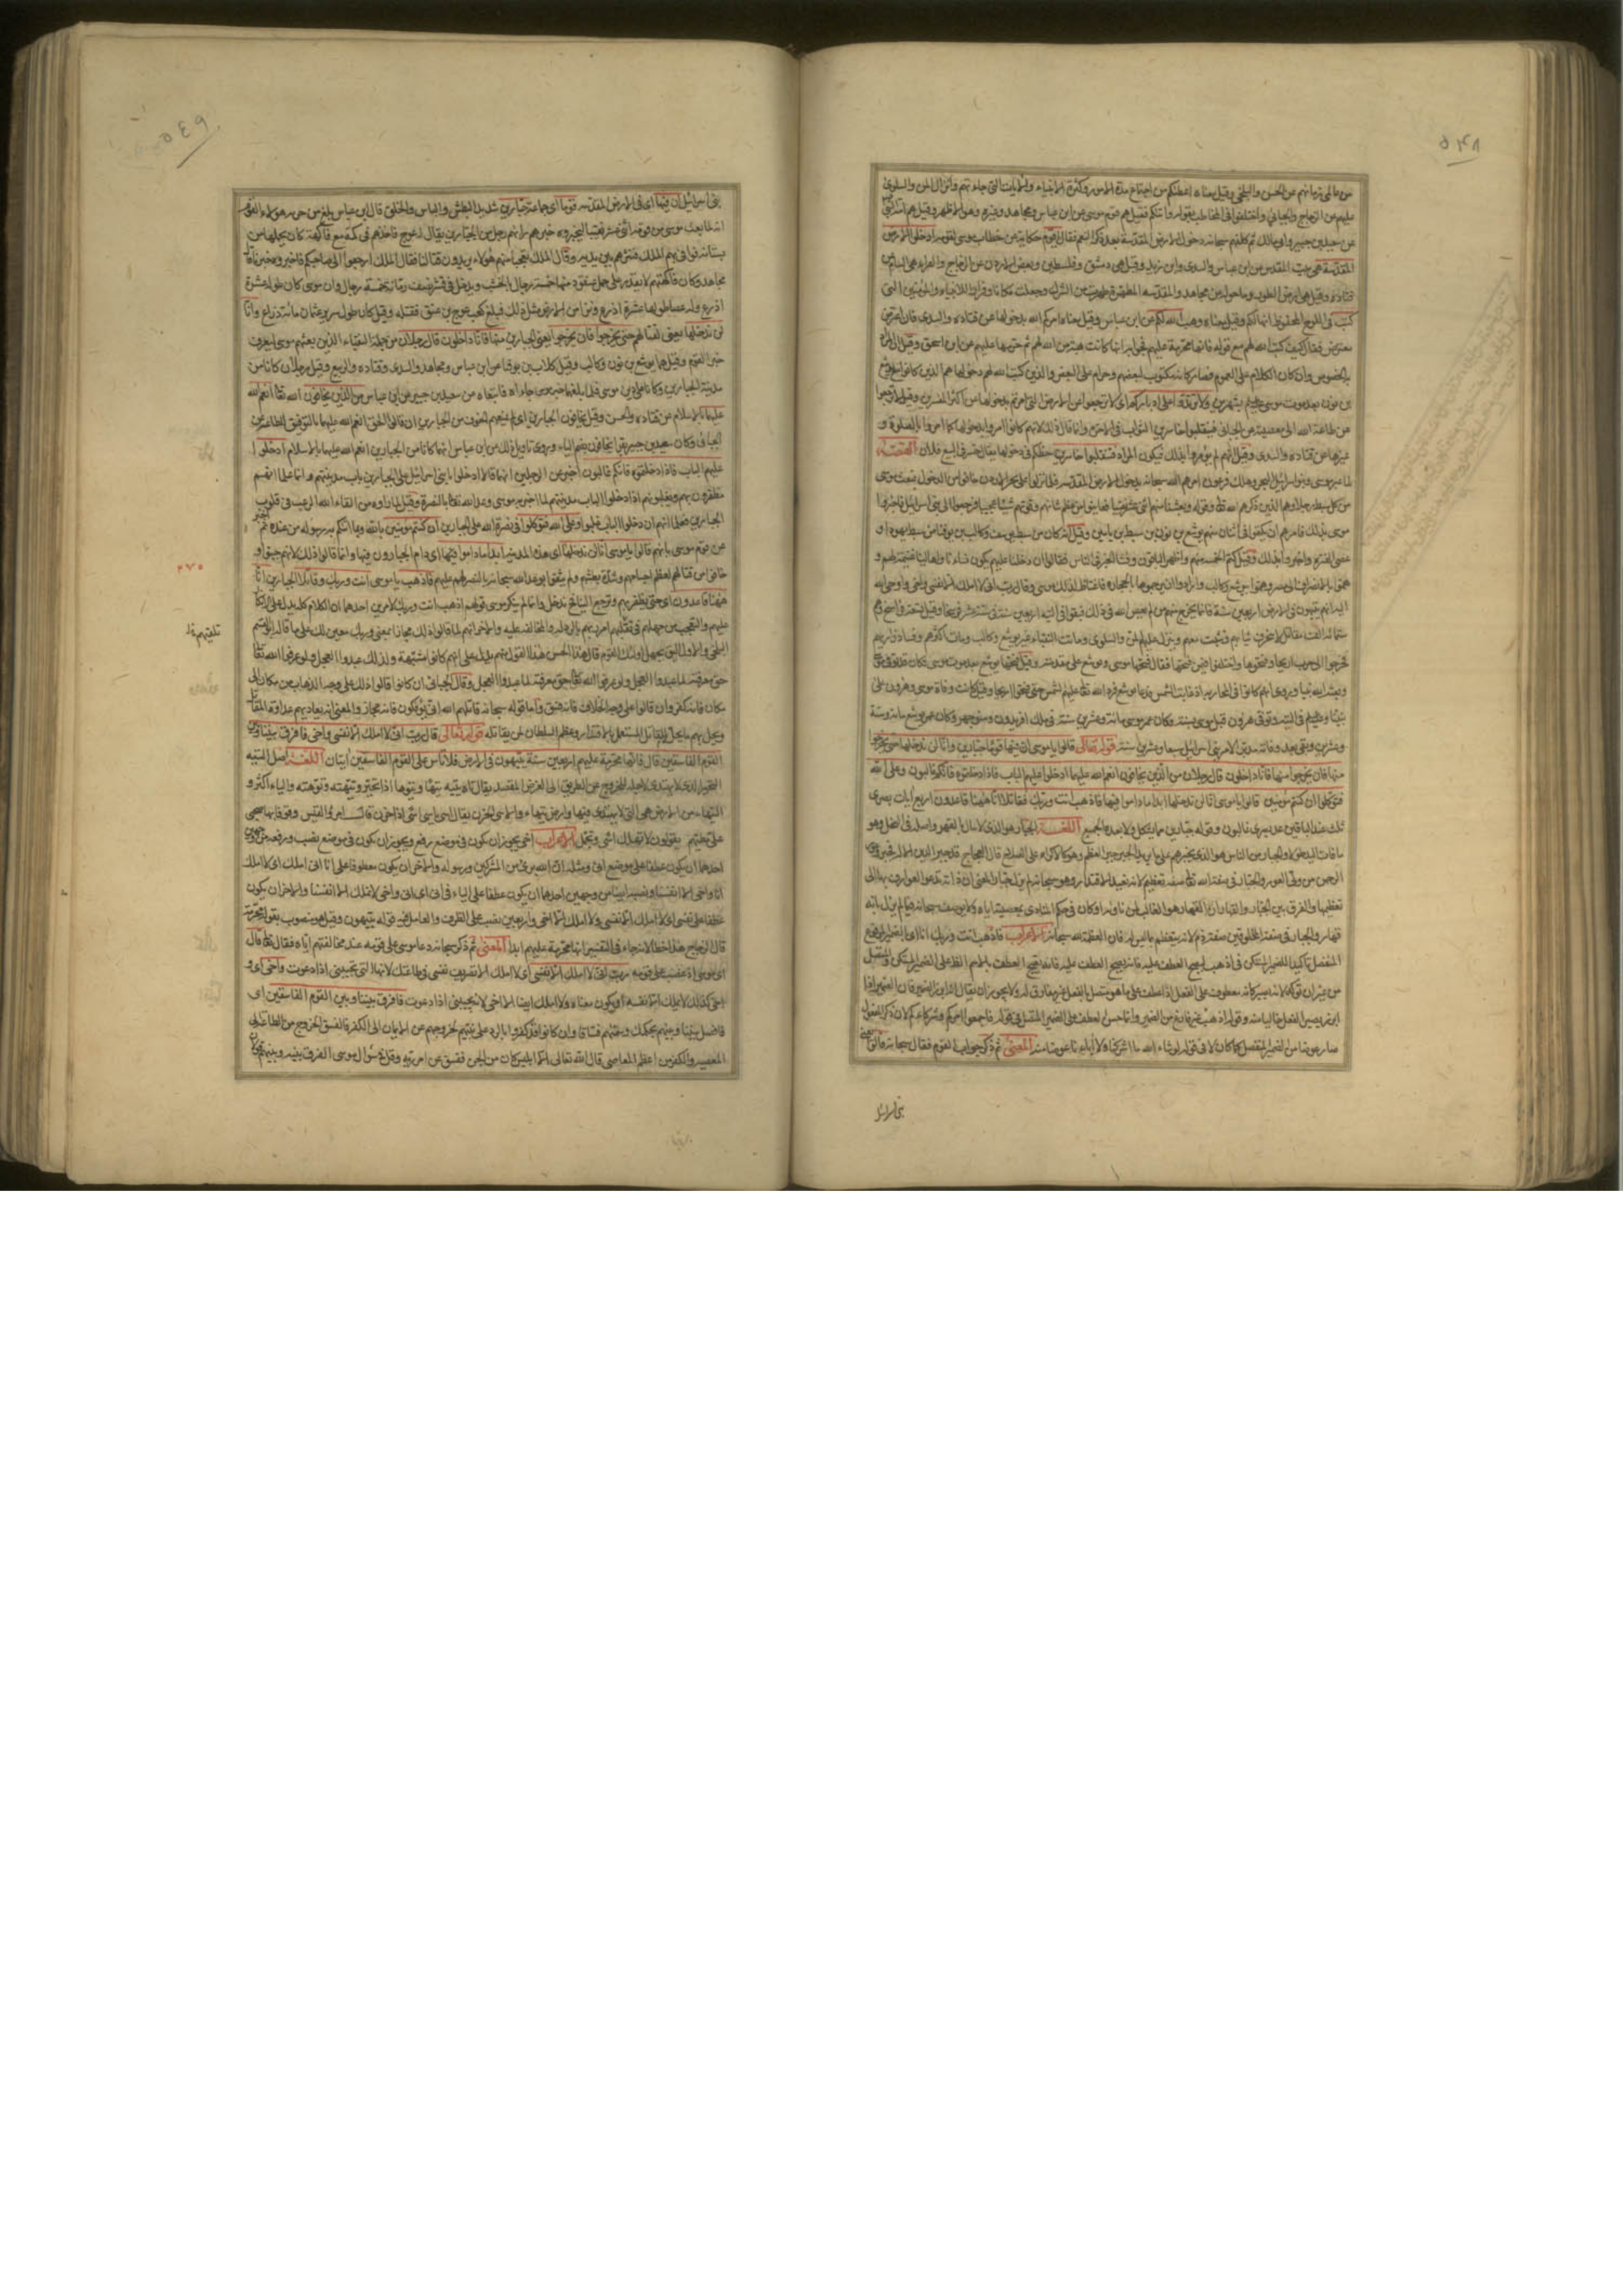 ٥٤٨
من عالمي زمانهم عن الحسن والبلخي وقيل معناه اعطاكم من اجتماع هذه الامور وكثرة الانبياء والآيات التي جاءتهم وانزال المن والسلوى
عليهم عن الزجاج والجبائي واختلفوا في المخاطب بقوله واتاكم فقيل هم قوم موسى عن ابن عباس ومجاهد وغيرهم وهو الاظهر وقيل هم امة نبينا
عن سعيد بن جبير وابي مالك ثم كلفهم سبحانه دخول الارض المقدسة بعد ذكر النعم فقال يا قوم حكاية عن خطاب موسى لقومه ادخلوا الارض
المقدسة هي بيت المقدس عن ابن عباس والسدي وابن زيد وقيل هي دمشق وفلسطين وبعض الاردن عن الزجاج والفراء وقيل هي الشام عن
قتادة وقيل هي ارض الطور وما حوله عن مجاهد والمقدسة المطهرة طهرت من الشرك وجعلت مكانا وقرارا للانبياء والمؤمنين التي
كتب في اللوح المحفوظ انها لكم وقيل معناه وهب الله لكم عن ابن عباس وقيل معناه امركم الله بدخولها عن قتادة والسدي فان اعترض
معترض فقال كيف كتب الله لهم مع قوله فانها محرمة عليهم فجوابه انها كانت هبة من الله لهم ثم حرمها عليهم عن ابن اسحق وقيل ان المراد
به الخصوص وان كان الكلام على العموم فصار كانه مكتوب لبعضهم وحرام على البعض والذين كتب الله لهم دخولها هم الذين كانوا مع يوشع
بن نون بعد موت موسى بشهرين ولا ترتدوا على ادباركم اي لا ترجعوا عن الارض التي امرتم بدخولها عن اكثر المفسرين وقيل لا ترجعوا
عن طاعة الله الى معصيته عن الجبائي فتنقلبوا خاسرين الثواب في الآخرة وانما قال ذلك لانهم كانوا امروا بدخولها كما امروا بالصلوة و
غيرها عن قتادة والسدي وقيل انهم لم يؤمروا بذلك فيكون المراد فتنقلبوا خاسرين حظكم في دخولها يقال خسر في البيع فلان القصة
لما عبر موسى وبنو اسرائيل البحر وهلك فرعون امرهم الله سبحانه بدخول الارض المقدسة فلما نزلوا على نهر الاردن خافوا من الدخول فبعث موسى
من كل سبط رجلا وهم الذين ذكرهم الله تعالى في قوله وبعثنا منهم اثني عشر نقيبا فعاينوا من عظم شانهم وقوتهم شيئا عجيبا فرجعوا الى بني اسرائيل فاخبروا
موسى بذلك فامرهم ان يكتموا فوفى اثنان منهم يوشع بن نون من سبط بن يامين وقيل انه كان من سبط يوسف وكالب بن يوفنا من سبط يهودا و
عصى العشرة واخبروا بذلك وقيل كتم الخمسة منهم واظهر الباقون وفشا الخبر في الناس فقالوا ان دخلنا عليهم يكون نساؤنا واهالينا غنيمة لهم و
هموا بالانصراف الى مصر وهموا بيوشع وكالب وارادوا ان يرجموهما بالحجارة فاغتاظ لذلك موسى وقال رب اني لا املك الا نفسي واخي واوحى الله
اليه انهم يتيهون في الارض اربعين سنة فانما يخرج منهم من لم يعص الله في ذلك فبقوا في التيه اربعين سنة في ستة عشر فرسخا وقيل تسعة فراسخ وهم
ستمائة الف مقاتل لا تتخرق ثيابهم وتثبت معهم وينزل عليهم المن والسلوى وماتت النقباء غير يوشع وكالب ومات اكثرهم ونشا ذراريهم
فخرجوا الى حرب اريحا وفتحوها واختلفوا فيمن فتحها فقال فتحها موسى ويوشع على مقدمته وقيل فتحها يوشع بعد موت موسى وكان قد توفي موسى
وبعثه الله نبيا وروي انهم كانوا في المحاربة اذ غابت الشمس فدعا يوشع فرد الله تعالى عليهم الشمس حتى فتحوا اريحا وقيل كانت وفاة موسى وهرون على
نبينا وعليهم في التيه وتوفي هرون قبل موسى بسنة وكان عمر موسى مائة وعشرين سنة في ملك افريدون ومنوجهر وكان عمر يوشع مائة وستة
وعشرين وبقي بعد وفاته مدبرا لامر بني اسرائيل سبعا وعشرين سنة قوله تعالى قالوا يا موسى ان فيها قوما جبارين وانا لن ندخلها حتى يخرجوا
منها فان يخرجوا منها فانا داخلون قال رجلان من الذين يخافون انعم الله عليهما ادخلوا عليهم الباب فاذا دخلتموه فانكم غالبون وعلى الله
فتوكلوا ان كنتم مؤمنين قالوا يا موسى انا لن ندخلها ابدا ما داموا فيها فاذهب انت وربك فقاتلا انا ههنا قاعدون اربع ايات بصرى
ثلث عند الباقين عد بصري غالبون وقوله جبارين مما يشكل ولا يعده الجميع اللغة الجبار هو الذي لا ينال بالقهر واصله في النخل وهو
ما فات اليد طولا والجبار من الناس هو الذي يجبرهم على ما يريد والجبر جبر العظم وهو كالاكراه على الصلاح قال العجاج قد جبر الدين الاله فجبر
والفرق بين الجبار والقهار ان القهار هو الغالب لمن ناواه او كان في حكم المناوي بمعصيته اياه ولا يوصف سبحانه فيما لم يزل بانه
قهار والجبار في صفة المخلوقين صفة ذم لانه يتعظم بما ليس له فان العظمة لله سبحانه الاعراب فاذهب انت وربك انما اتى بالضمير المرفوع
المنفصل تاكيدا للضمير المستكن في اذهب ليصح العطف عليه فانه يقبح العطف بالاسم الظاهر على الضمير المستكن والمتصل
ابرز يصير الفعل خاليا منه وقوله اذهب غير فارغ من الضمير وانما حسن العطف على الضمير المتصل في قوله فاجمعوا امركم وشركاءكم لان ذكر المفعول
صار عوضا من الضمير المنفصل كما كان لا في قوله لو شاء الله ما اشركنا ولا آباؤنا عوضا منه المعنى ثم ذكر جواب القوم فقال سبحانه قالوا يعني
بني اسرائيل
٥٤٩
بني اسرائيل ان فيها اي في الارض المقدسة قوما اي جماعة جبارين شديد البطش والباس والخلق قال ابن عباس بلغ من جبرية هؤلاء القوم
انه لما بعث موسى من قومه اثني عشر نقيبا ليخبروه خبرهم رآهم رجل من الجبارين يقال له عوج فاخذهم في كمه مع فاكهة كان يحملها من
بستانه واتى بهم الملك فنثرهم بين يديه وقال الملك تعجبا منهم هؤلاء يريدون قتالنا فقال الملك ارجعوا الى صاحبكم فاخبروه خبرنا قال
مجاهد وكان فاكهتهم لا يقدر على حمل عنقود منها خمسة رجال بالخشب ويدخل في قشر نصف رمانة خمسة رجال وان موسى كان طوله عشرة
اذرع وله عصا طولها عشرة اذرع ونزا من الارض مثل ذلك فبلغ كعب عوج بن عنق فقتله وقيل كان طول سريره ثمان مائة ذراع وانا
لن ندخلها يعني لقتالهم حتى يخرجوا فان يخرجوا يعني الجبارين منها فانا داخلون قال رجلان من جملة النقباء الذين بعثهم موسى ليعرف
خبر القوم وقيل هما يوشع بن نون وكالب وقيل كلاب بن يوفنا عن ابن عباس ومجاهد والسدي وقتادة والربيع وقيل رجلان كانا من
مدينة الجبارين وكانا على دين موسى فلما بلغهما خبر موسى جاءاه فاتبعاه عن سعيد بن جبير عن ابن عباس من الذين يخافون الله تعالى انعم الله
عليهما بالاسلام عن قتادة والحسن وقيل يخافون الجبارين اي لم يمنعهم الخوف من الجبارين ان قالوا الحق انعم الله عليهما بالتوفيق للطاعة عن
الجبائي وكان سعيد بن جبير يقرا يخافون بضم الياء وروى تاويل ذلك عن ابن عباس انهما كانا من الجبارين انعم الله عليهما بالاسلام ادخلوا
عليهم الباب فاذا دخلتموه فانكم غالبون اخبر عن الرجلين انهما قالا ادخلوا يا بني اسرائيل على الجبارين باب مدينتهم وانما علما انهم
مظفرون بهم ويغلبونهم اذا دخلوا الباب مدينتهم لما اخبر به موسى وعد الله تعالى بالنصرة وقيل لما راوه من القاء الله الرعب في قلوب
الجبارين فعلما انهم ان دخلوا الباب غلبوا وعلى الله فتوكلوا في نصرة الله على الجبارين ان كنتم مؤمنين بالله وبما اتاكم به رسوله من عنده ثم اخبر
عن قوم موسى بانهم قالوا يا موسى انا لن ندخلها اي هذه المدينة ابدا ما داموا فيها اي ما دام الجبارون فيها وانما قالوا ذلك لانهم جبنوا و
خافوا من قتالهم لعظم اجسامهم وشدة بطشهم ولم يثقوا بوعد الله سبحانه بالنصرة لهم عليهم فاذهب يا موسى انت وربك وقاتلا الجبارين انا
ههنا قاعدون اي حتى يظفر بهم وترجع الينا ثم ندخل وانما لم ينكر موسى قولهم اذهب انت وربك لامرين احدهما ان الكلام كله يدل على الانكار
عليهم والتعجب من جهلهم في تلقيهم امر ربهم بالرد له والمخالفة عليه والاخر انهم لما قالوا ذلك مجازا بمعنى وربك معين لك على ما قاله ابو القاسم
البلخي والاول اليق بجهل اولئك القوم قال الحسن هذا القول منهم يدل على انهم كانوا مشبهة ولذلك عبدوا العجل ولو عرفوا الله تعالى
حق معرفته لما عبدوا العجل وقال الجبائي ان كانوا قالوا ذلك على وجه الذهاب من مكان الى
مكان فانه كفر وان قالوا على وجه الخلاف فانه فسق واما قوله سبحانه قاتلهم الله انى يؤفكون فانه مجاز والمعنى انه يعاديهم عداوة المقاتل
ويحل بهم ما يحل بالمقاتل المستعلي بالاقتدار وعظم السلطان لمن يقاتله قوله تعالى قال رب اني لا املك الا نفسي واخي فافرق بيننا وبين
القوم الفاسقين قال فانها محرمة عليهم اربعين سنة يتيهون في الارض فلا تاس على القوم الفاسقين ايتان اللغة اصل التيه
التحير الذي لا يهتدى لاجله للخروج عن الطريق الى الغرض المقصد يقال تاه يتيه تيها وتيوها اذا تحير وتيهته وتوهته والياء اكثر و
التيهاء من الارض هي التي لا يهتدى فيها وارض تيهاء والاسى الحزن يقال اسى ياسى اسى اذا حزن قال امرؤ القيس وقوفا بها صحبي
على مطيهم يقولون لا تهلك اسى وتجمل الاعراب اخي يجوز ان يكون في موضع رفع ويجوز ان يكون في موضع نصب ورفعه من وجهين
احدهما ان يكون عطفا على موضع اني ومثله ان الله بريء من المشركين ورسوله والاخر ان يكون معطوفا على انا في املك اي لا املك
انا واخي الا انفسنا ونصبه ايضا من وجهين احدهما ان يكون عطفا على الياء في اني اي اني واخي لا نملك الا انفسنا والاخر ان يكون
عطفا على نفسي اي لا املك الا نفسي ولا املك الا اخي واربعين نصب على الظرف والعامل فيه قوله يتيهون وقيل هو منصوب بقوله محرمة
قال الزجاج هذا خطا لانه جاء في التفسير انها محرمة عليهم ابدا المعنى ثم ذكر سبحانه دعاء موسى على قومه عند مخالفتهم اياه فقال تعالى قال
اي موسى اذ غضب على قومه رب اني لا املك الا نفسي اي لا املك الا تصريف نفسي في طاعتك لانها التي تجيبني اذا دعوت واخي اي و
اخي كذلك لا يملك الا نفسه او يكون معناه ولا املك ايضا الا اخي لانه يجيبني اذا دعوت فافرق بيننا وبين القوم الفاسقين اي
فاصل بيننا وبينهم بحكمك وسماهم فساقا وان كانوا قد كفروا بالرد على نبيهم لخروجهم عن الايمان الى الكفر فالفسق الخروج من الطاعة الى
المعصية والكفر من اعظم المعاصي قال الله تعالى الا ابليس كان من الجن ففسق عن امر ربه وقيل في سؤال موسى الفرق بينه وبينهم
٢٧٥
تلقيهم